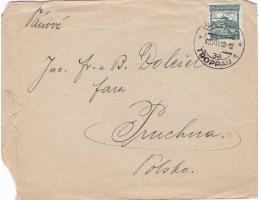 Pánové
Inc. fr. a B. Doležel
fara
Pruchna.
Polsko.
TROPPAU